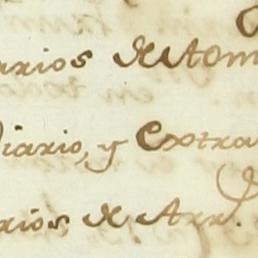 arios de Tom
iario, y Extra
rios de Arr.